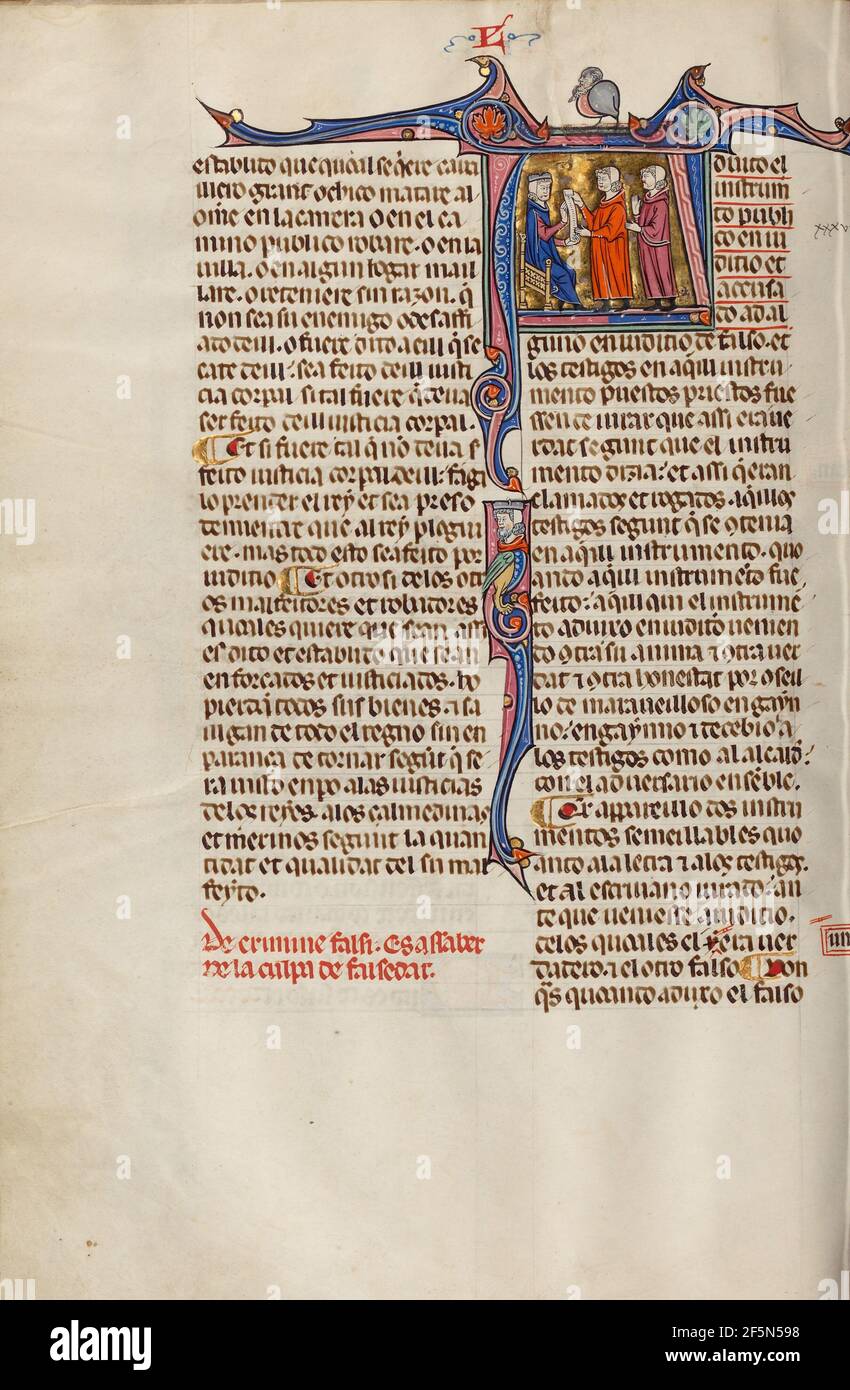 L
establito que qual se q̃ere caua
llero grant o chico matare al
om̃e en la carrera o en el ca
mino publico robare · o en la
uilla · o en algun logar mall
lare · o reteniere sin razon · q̃
non sea su enemigo o desaffi
ado deill · o fuere dito a eill q̃ se
cate deill : sea feito deill iusti
cia corpal si tal fuere q̃ deua
ser feito deill iusticia corpal ·
Et si fuere tal q̃ nõ deua s̃
feito iusticia corpal deill : fága
lo prender el rey et sea preso
demientre que al rey plogui
ere · mas todo esto sea feito por
iuditio Et otro si de los otr
os malfeitores et robadores
quales quiere que sean assi
es dito et establito que sean
enforcados et iusticiados · τ
pierdan todos sus bienes · τ sa
lligan de todo el regno sin es
perança de tornar segũt q̃ se
ra uisto en po a las iusticias
de los reyes · a los çalmedinas
et merinos segunt la quan
tidat et qualidat del su mal
feyto ·
De crimine falsi · Es assaber
de la culpa de falsedat ·
duito el
instrum
to publi
co en iu
ditio et
acusa
do ad al
guno en iuditio de falso · et
los testigos en aq̃ill instru
mento puestos priestos fue
ssen de iurar que assi era ue
rdat segunt que el instru
mento dizia : et assi q̃ eran
clamados et rogados · aq̃llos
testigos segunt q̃ se 9tenia
en aq̃ill instrumento · quo
ando aq̃ill instrumẽto fue
feito : aq̃ill qui el instrumẽ
to aduxo en iudiťo uenien
do 9tra su anima τ 9tra uer
dat τ 9tra honestat por o seil
lo de marauelloso engayn
no : engaynno τ decebio a
los testigos como al alcald :
con el aduersario enséble ·
Et appareillo dos instru
mentos semeillables quo
anto a la letra τ a los testigos ·
et al escriuano iurado : an
te que ueniesse a iuditio ·
de los quales el era uer
dadero · τ el otro falso Don
q̃s quoando aduxo el falso
xxxv
a
alamy
Image ID: 2F5N598
www.alamy.com